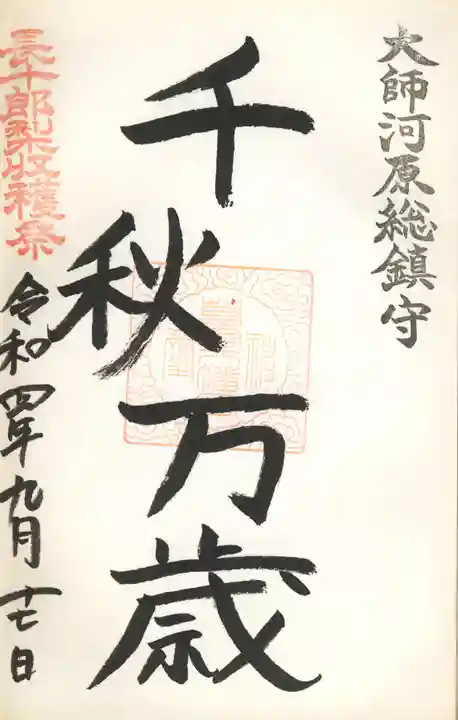 大師河原総鎮守
千秋万歳
長十郎梨収穫祭
令和四年九月十七日